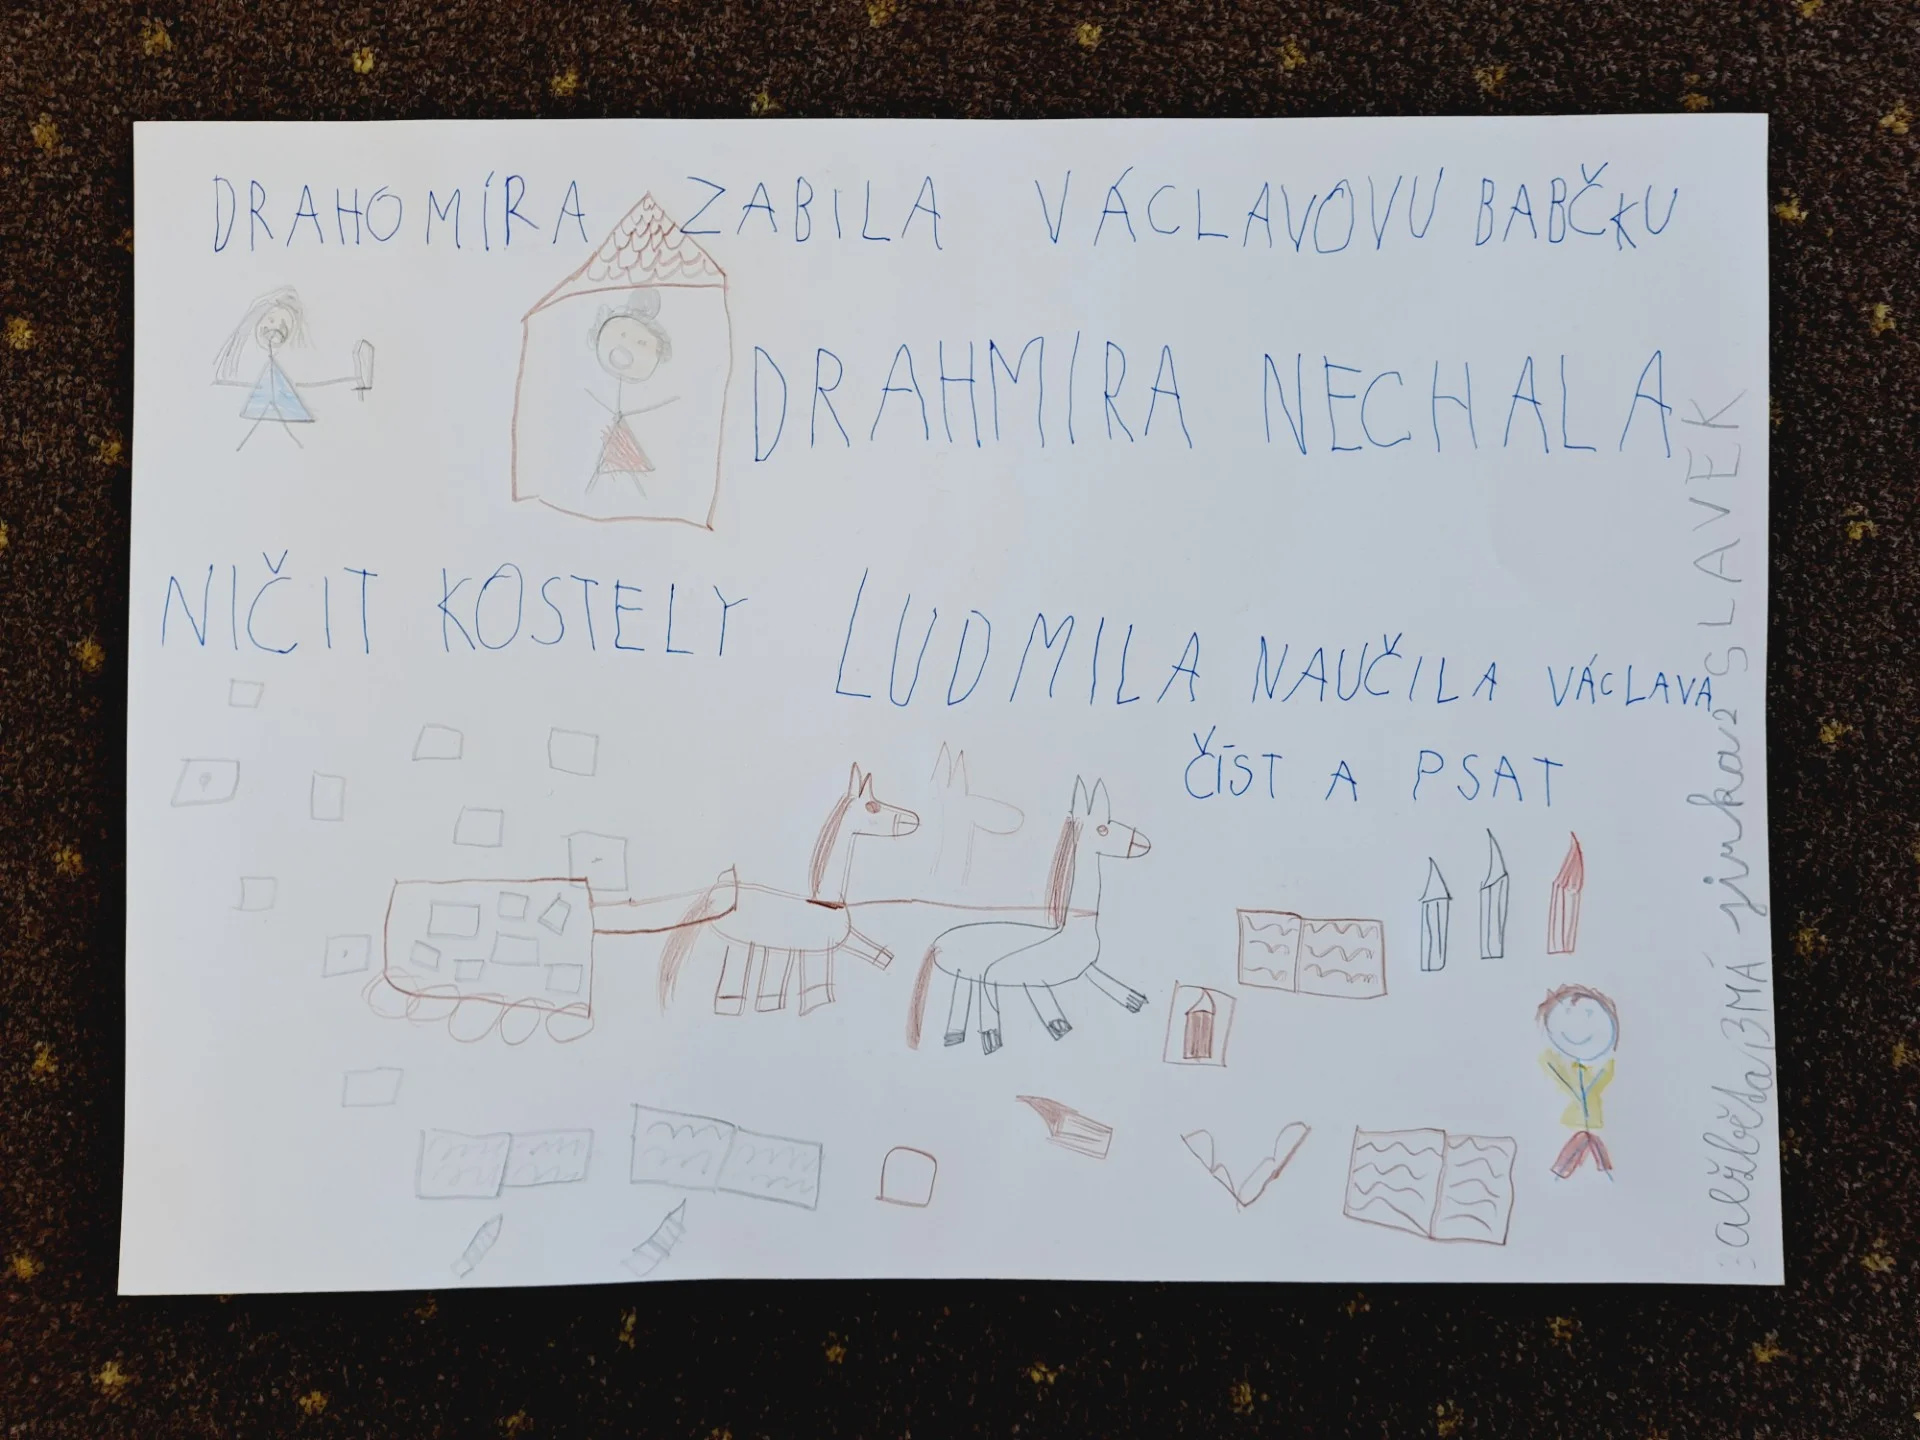 DRAHOMÍRA ZABILA VÁCLAVOVU BABČKU
DRAHMÍRA NECHALA
NIČIT KOSTELY
LUDMILA NAUČILA VÁCLAVA
ČÍST A PSAT
SLAVĚK